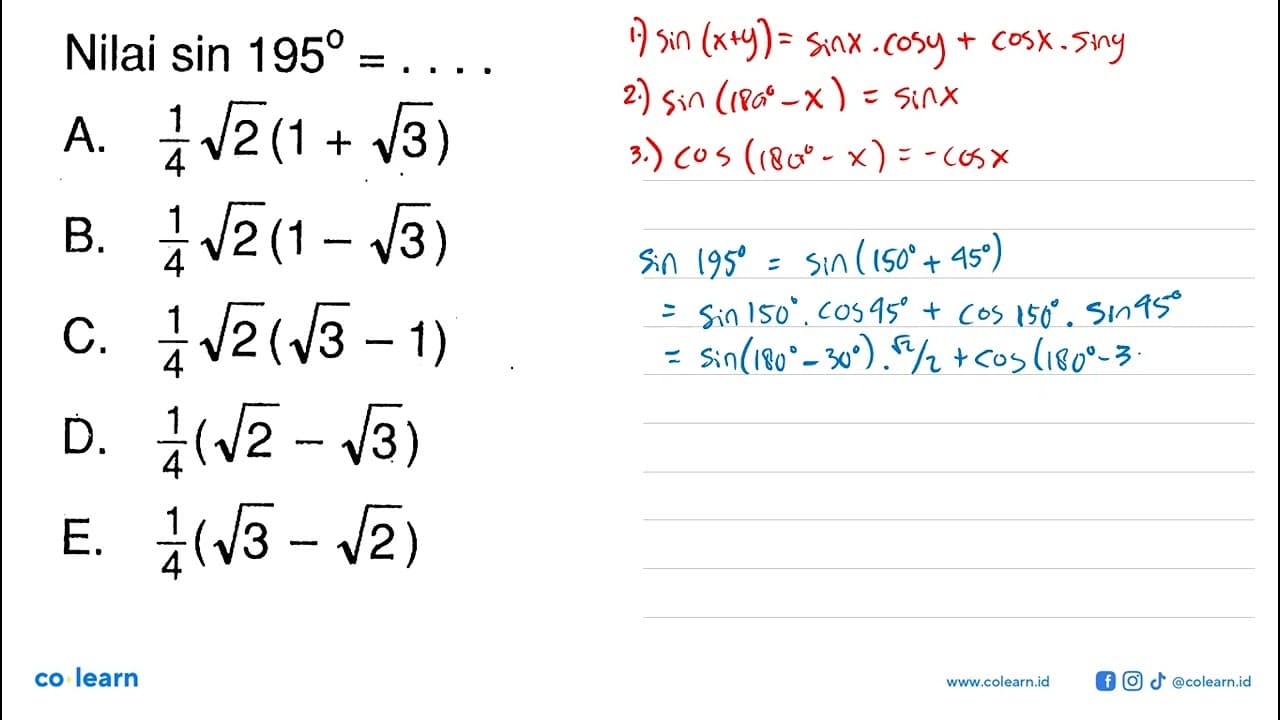 Nilai sin 195° = . . . .
A. 1/4 √2 (1 + √3)
B. 1/4 √2 (1 − √3)
C. 1/4 √2 (√3 − 1)
D. 1/4 (√2 − √3)
E. 1/4 (√3 − √2)
1.) sin (x+y) = sin x . cos y + cos x . sin y
2.) sin (180° − x) = sin x
3.) cos (180° − x) = − cos x
sin 195° = sin (150° + 45°)
= sin 150° . cos 45° + cos 150° . sin 45°
= sin (180° − 30°) . √2/2 + cos (180° − 3
co learn
www.colearn.id
@colearn.id